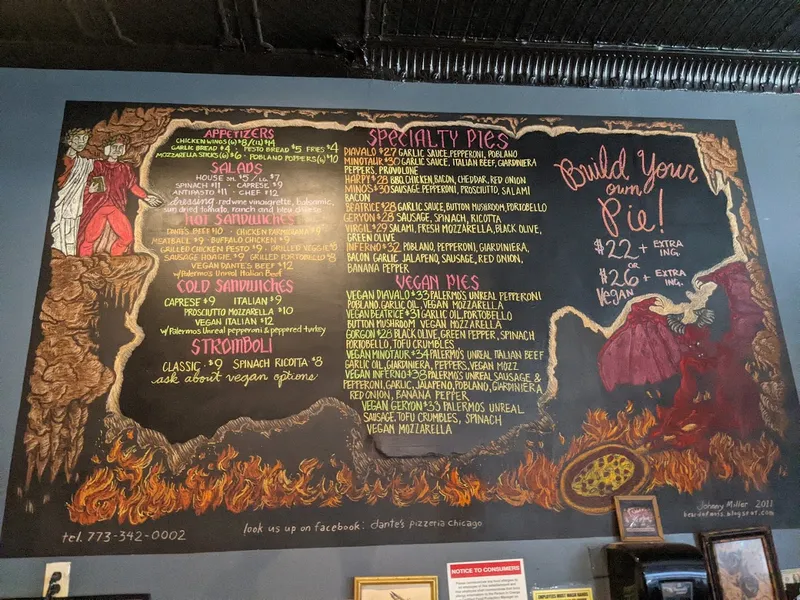 APPETIZERS
CHICKEN WINGS (6) $8/(12) $14
GARLIC BREAD $4 • PESTO BREAD $5 FRIES $4
MOZZARELLA STICKS (6) $6 • POBLANO POPPERS (6) $10
SALADS
HOUSE SM. $5 / LG. $7
SPINACH $11 • CAPRESE $9
ANTIPASTO $11 • CHEF $12
dressing: red wine vinaigrette, balsamic,
sun dried tomato, ranch and bleu cheese
HOT SANDWICHES
DANTE'S BEEF $10 • CHICKEN PARMIGIANA $9
MEATBALL $9 • BUFFALO CHICKEN $9
GRILLED CHICKEN PESTO $9 • GRILLED VEGGIE $8
SAUSAGE HOAGIE $9 • GRILLED PORTOBELLO $8
VEGAN DANTE'S BEEF $12
w/Palermo's Unreal Italian Beef
COLD SANDWICHES
CAPRESE $9 ITALIAN $9
PROSCIUTTO MOZZARELLA $10
VEGAN ITALIAN $12
w/Palermos Unreal pepperoni & peppered turkey
STROMBOLI
CLASSIC • $9 SPINACH RICOTTA $8
ask about vegan options
SPECIALTY PIES
DIAVALO $27 GARLIC SAUCE, PEPPERONI, POBLANO
MINOTAUR $30 GARLIC SAUCE, ITALIAN BEEF, GIARDINIERA
PEPPERS, PROVOLONE
HARPY $28 BBQ, CHICKEN, BACON, CHEDDAR, RED ONION
MINOS $30 SAUSAGE, PEPPERONI, PROSCIUTTO, SALAMI
BACON
BEATRICE $28 GARLIC SAUCE, BUTTON MUSHROOM, PORTOBELLO
GERYON $28 SAUSAGE, SPINACH, RICOTTA
VIRGIL $29 SALAMI, FRESH MOZZARELLA, BLACK OLIVE,
GREEN OLIVE
INFERNO $32 POBLANO, PEPPERONI, GIARDINIERA,
BACON GARLIC JALAPEÑO, SAUSAGE, RED ONION,
BANANA PEPPER
VEGAN PIES
VEGAN DIAVALO $33 PALERMO'S UNREAL PEPPERONI
POBLANO, GARLIC OIL, VEGAN MOZZARELLA
VEGAN BEATRICE $31 GARLIC OIL, PORTOBELLO
BUTTON MUSHROOM VEGAN MOZZARELLA
GORGON $28 BLACK OLIVE, GREEN PEPPER, SPINACH
PORTOBELLO, TOFU CRUMBLES
VEGAN MINOTAUR $34 PALERMO'S UNREAL ITALIAN BEEF
GARLIC OIL, GIARDINIERA, PEPPERS, VEGAN MOZZ
VEGAN INFERNO $38 PALERMO'S UNREAL SAUSAGE &
PEPPERONI, GARLIC, JALAPEÑO, POBLANO, GIARDINIERA
RED ONION, BANANA PEPPER
VEGAN GERYON $33 PALERMO'S UNREAL
SAUSAGE, TOFU CRUMBLES, SPINACH
VEGAN MOZZARELLA
Build Your
own
Pie!
$22 + EXTRA ING.
OR
$26 + EXTRA ING.
Vegan
Johnny Miller 2011
tel. 773-342-0002
look us up on facebook: dante's pizzeria chicago
NOTICE TO CONSUMERS